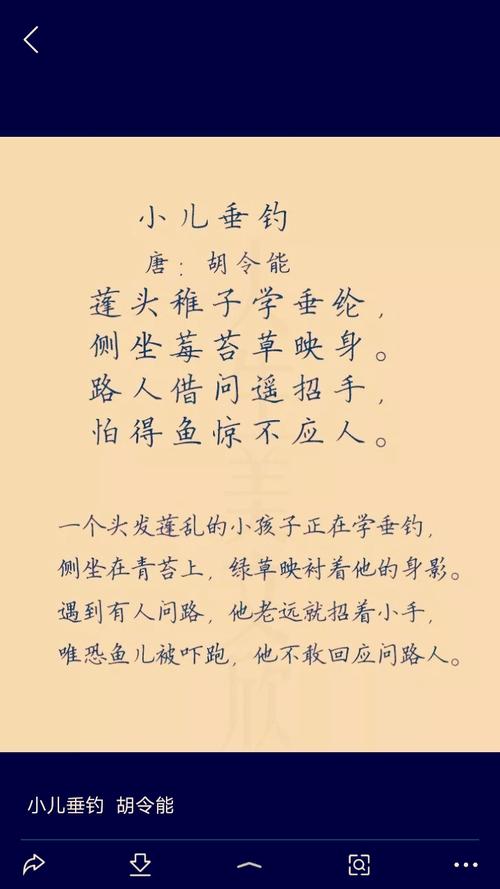 小儿垂钓
唐：胡令能
莲头稚子学垂纶，
侧坐莓苔草映身。
路人借问遥招手，
怕得鱼惊不应人。
一个头发莲乱的小孩子正在学垂钓，
侧坐在青苔上，绿草映衬着他的身影。
遇到有人问路，他老远就招着小手，
唯恐鱼儿被吓跑，他不敢回应问路人。
小儿垂钓 胡令能